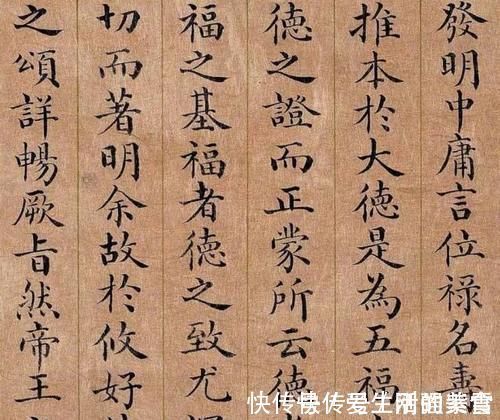 發明中庸言位祿名壽
推本於大德是為五福
德之證而正蒙所云德
福之基福者德之致尤
切而著明余故於攸好
之頌詳暢厥旨然帝王
快传